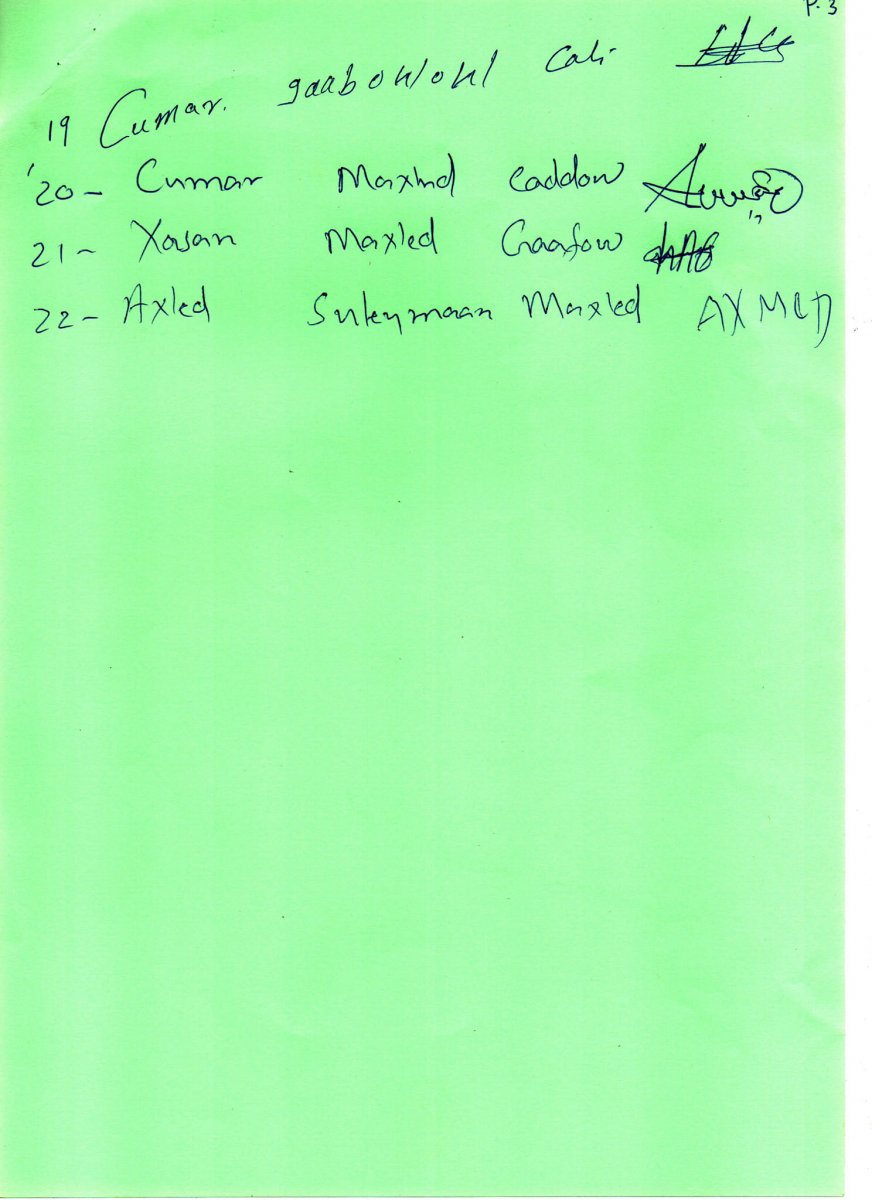 P. 3
19 Cumar. gaabow/ow/ Cali
20 - Cumar Maxmd Caddow
21 - Xasan Maxled Gaafow
22 - Axled Suleymaan Maxled AXMED